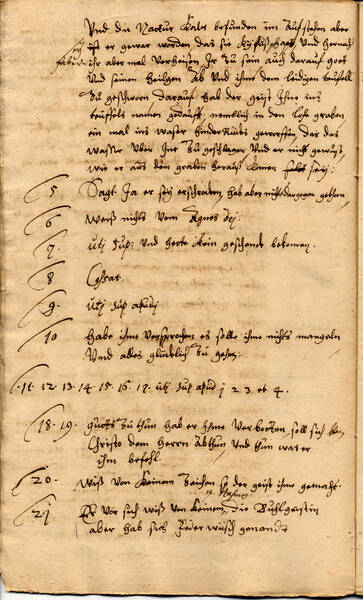 Vnd die Natur Kalt befunden im Aufstehen aber
ist er gewar worden das sie Küfüsß hab, Vnd hernach
habe ihr aber mal Verheisen Ir zu sein auch darauf gott
Vnd seinen heilgen Ab Vnd ihme dem laidigen teuffell
zu geschworn darauf hab der geist Ihne ins
teuffels namen getaufft, nemblich in den graben
ein mal ins waßer hinder Rückhs geworffen dar das
waßer über Ine zu geschlagen Vnd er nicht gewust,
wie er aus dem graben heraus komen sey:
5 Sagt Ja er sey erschrocken, hab aber nichts dargegen gethan,
6 Weiß nichts vom Agnus dej.
7. utj sup: Vnd herte kein geschenk bekomen.
8 Cessat.
9. utj sup
10 habe ihme Versprochen es solle ihme nichts mangeln
Vnd alles glücklich zu gehen:
11. 12. 13. 14. 15. 16. 17. utj sup apud 1 2 3 et 4.
18. 19. guets zu thun hab er ihme Verbotten, soll sich
Christo dem herrn Abthun Vnd thun was er
ihm befehl.
20. Wiß von keinem Zaichen so der geist ihme gemacht.
21 Er vor sich wiß von keinem Nahmen, die Buhlgeistin
aber hab sich Federwüsch genandt